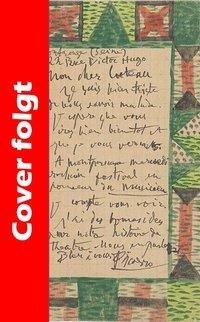 Cover folgt
(Seine)
22 Rue Victor Hugo
Mon cher Cocteau
Je suis bien triste
de vous savoir malade.
J'espere que vous
irez bien bientot et
que je vous verrai
A montparnasse mercredi
festival en
honneur du musicien
compte vous voir
J'ai des bonnes idées
sur notre histoire du
theatre. Nous en
Bien à vous Picasso